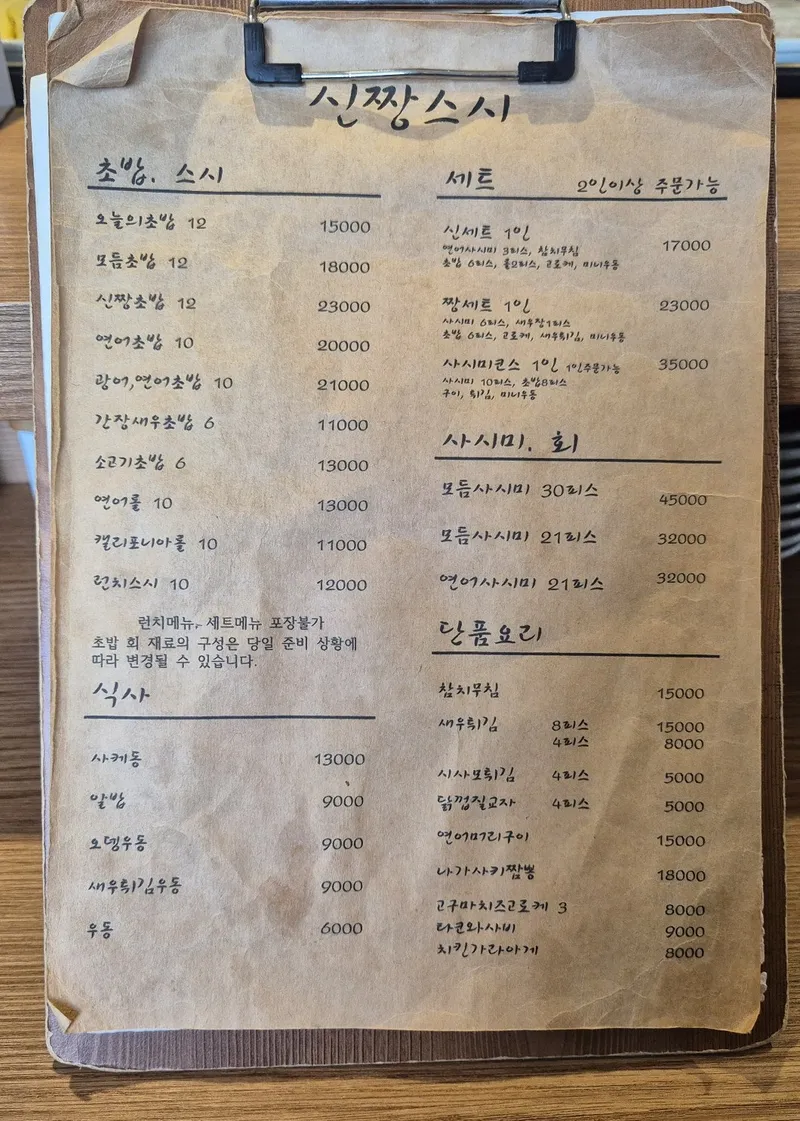 신짱스시
초밥. 스시
오늘의초밥 12 15000
모듬초밥 12 18000
신짱초밥 12 23000
연어초밥 10 20000
광어,연어초밥 10 21000
간장새우초밥 6 11000
소고기초밥 6 13000
연어롤 10 13000
캘리포니아롤 10 11000
런치스시 10 12000
런치메뉴, 세트메뉴 포장불가
초밥 회 재료의 구성은 당일 준비 상황에
따라 변경될 수 있습니다.
식사
사케동 13000
알밥 9000
오뎅우동 9000
새우튀김우동 9000
우동 6000
세트 2인이상 주문가능
신세트 1인 17000
연어사시미 3피스, 참치무침
초밥 6피스, 롤2피스, 고로케, 미니우동
짱세트 1인 23000
사시미 6피스, 새우장1피스
초밥 6피스, 고로케, 새우튀김, 미니우동
사시미코스 1인 1인주문가능 35000
사시미 10피스, 초밥8피스
구이, 튀김, 미니우동
사시미. 회
모듬사시미 30피스 45000
모듬사시미 21피스 32000
연어사시미 21피스 32000
단품요리
참치무침 15000
새우튀김 8피스 15000
4피스 8000
시사모튀김 4피스 5000
닭껍질교자 4피스 5000
연어머리구이 15000
나가사키짬뽕 18000
고구마치즈고로케 3 8000
타코와사비 9000
치킨가라아게 8000